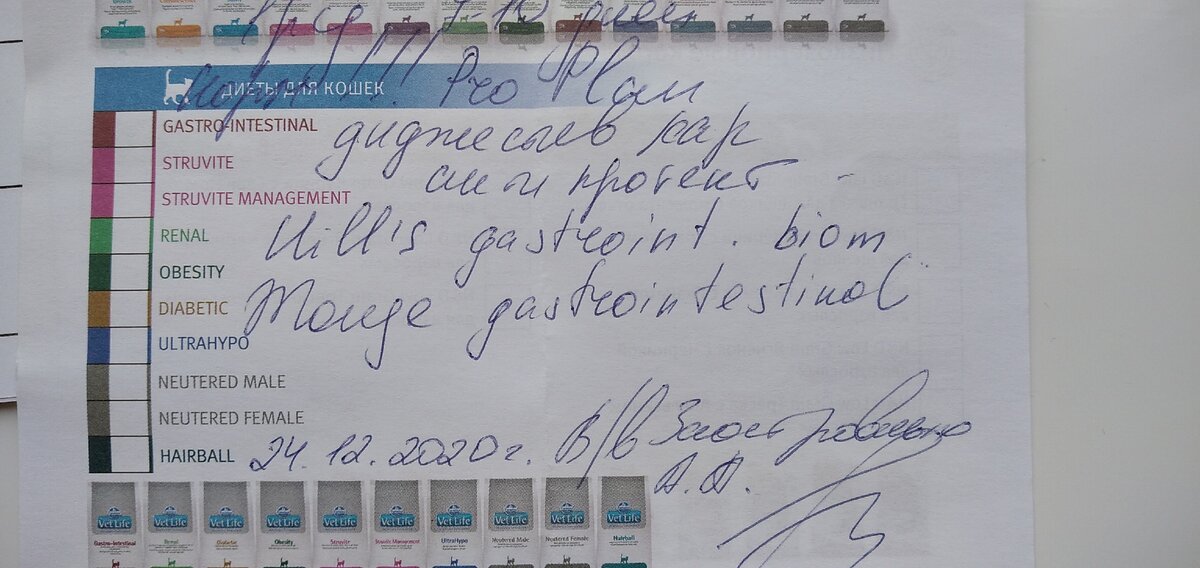 7 10 дней
корм !!! Pro Plan
ДИЕТЫ ДЛЯ КОШЕК
GASTRO-INTESTINAL
диджестив кар
STRUVITE
анти протект -
STRUVITE MANAGEMENT
RENAL
Hill's gastroint. biom
OBESITY
DIABETIC
Monge gastrointestinal
ULTRAHYPO
NEUTERED MALE
NEUTERED FEMALE
HAIRBALL
24.12.2020г. В/в Заостровцева
А.А.
Vet Life Vet Life Vet Life Vet Life Vet Life Vet Life Vet Life Vet Life Vet Life Vet Life
Gastro-Intestinal Renal Diabetic Obesity Struvite Struvite Management UltraHypo Neutered Male Neutered Female Hairball